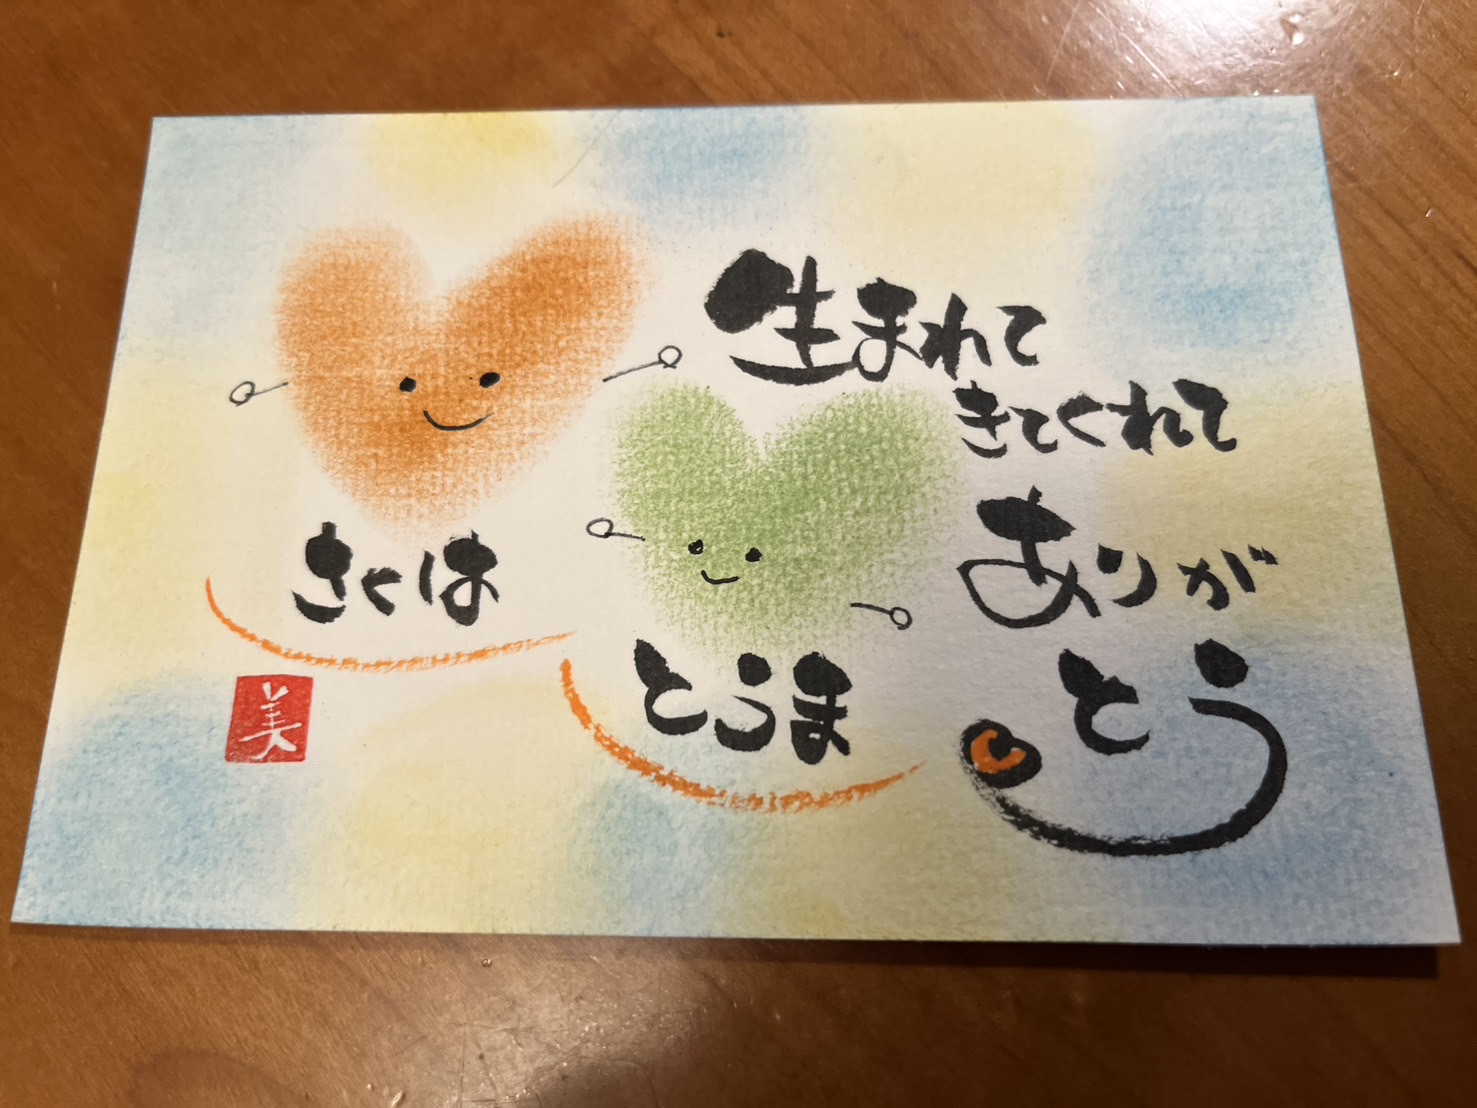 生まれて
きてくれて
ありが
とう
さくは
とうま
美